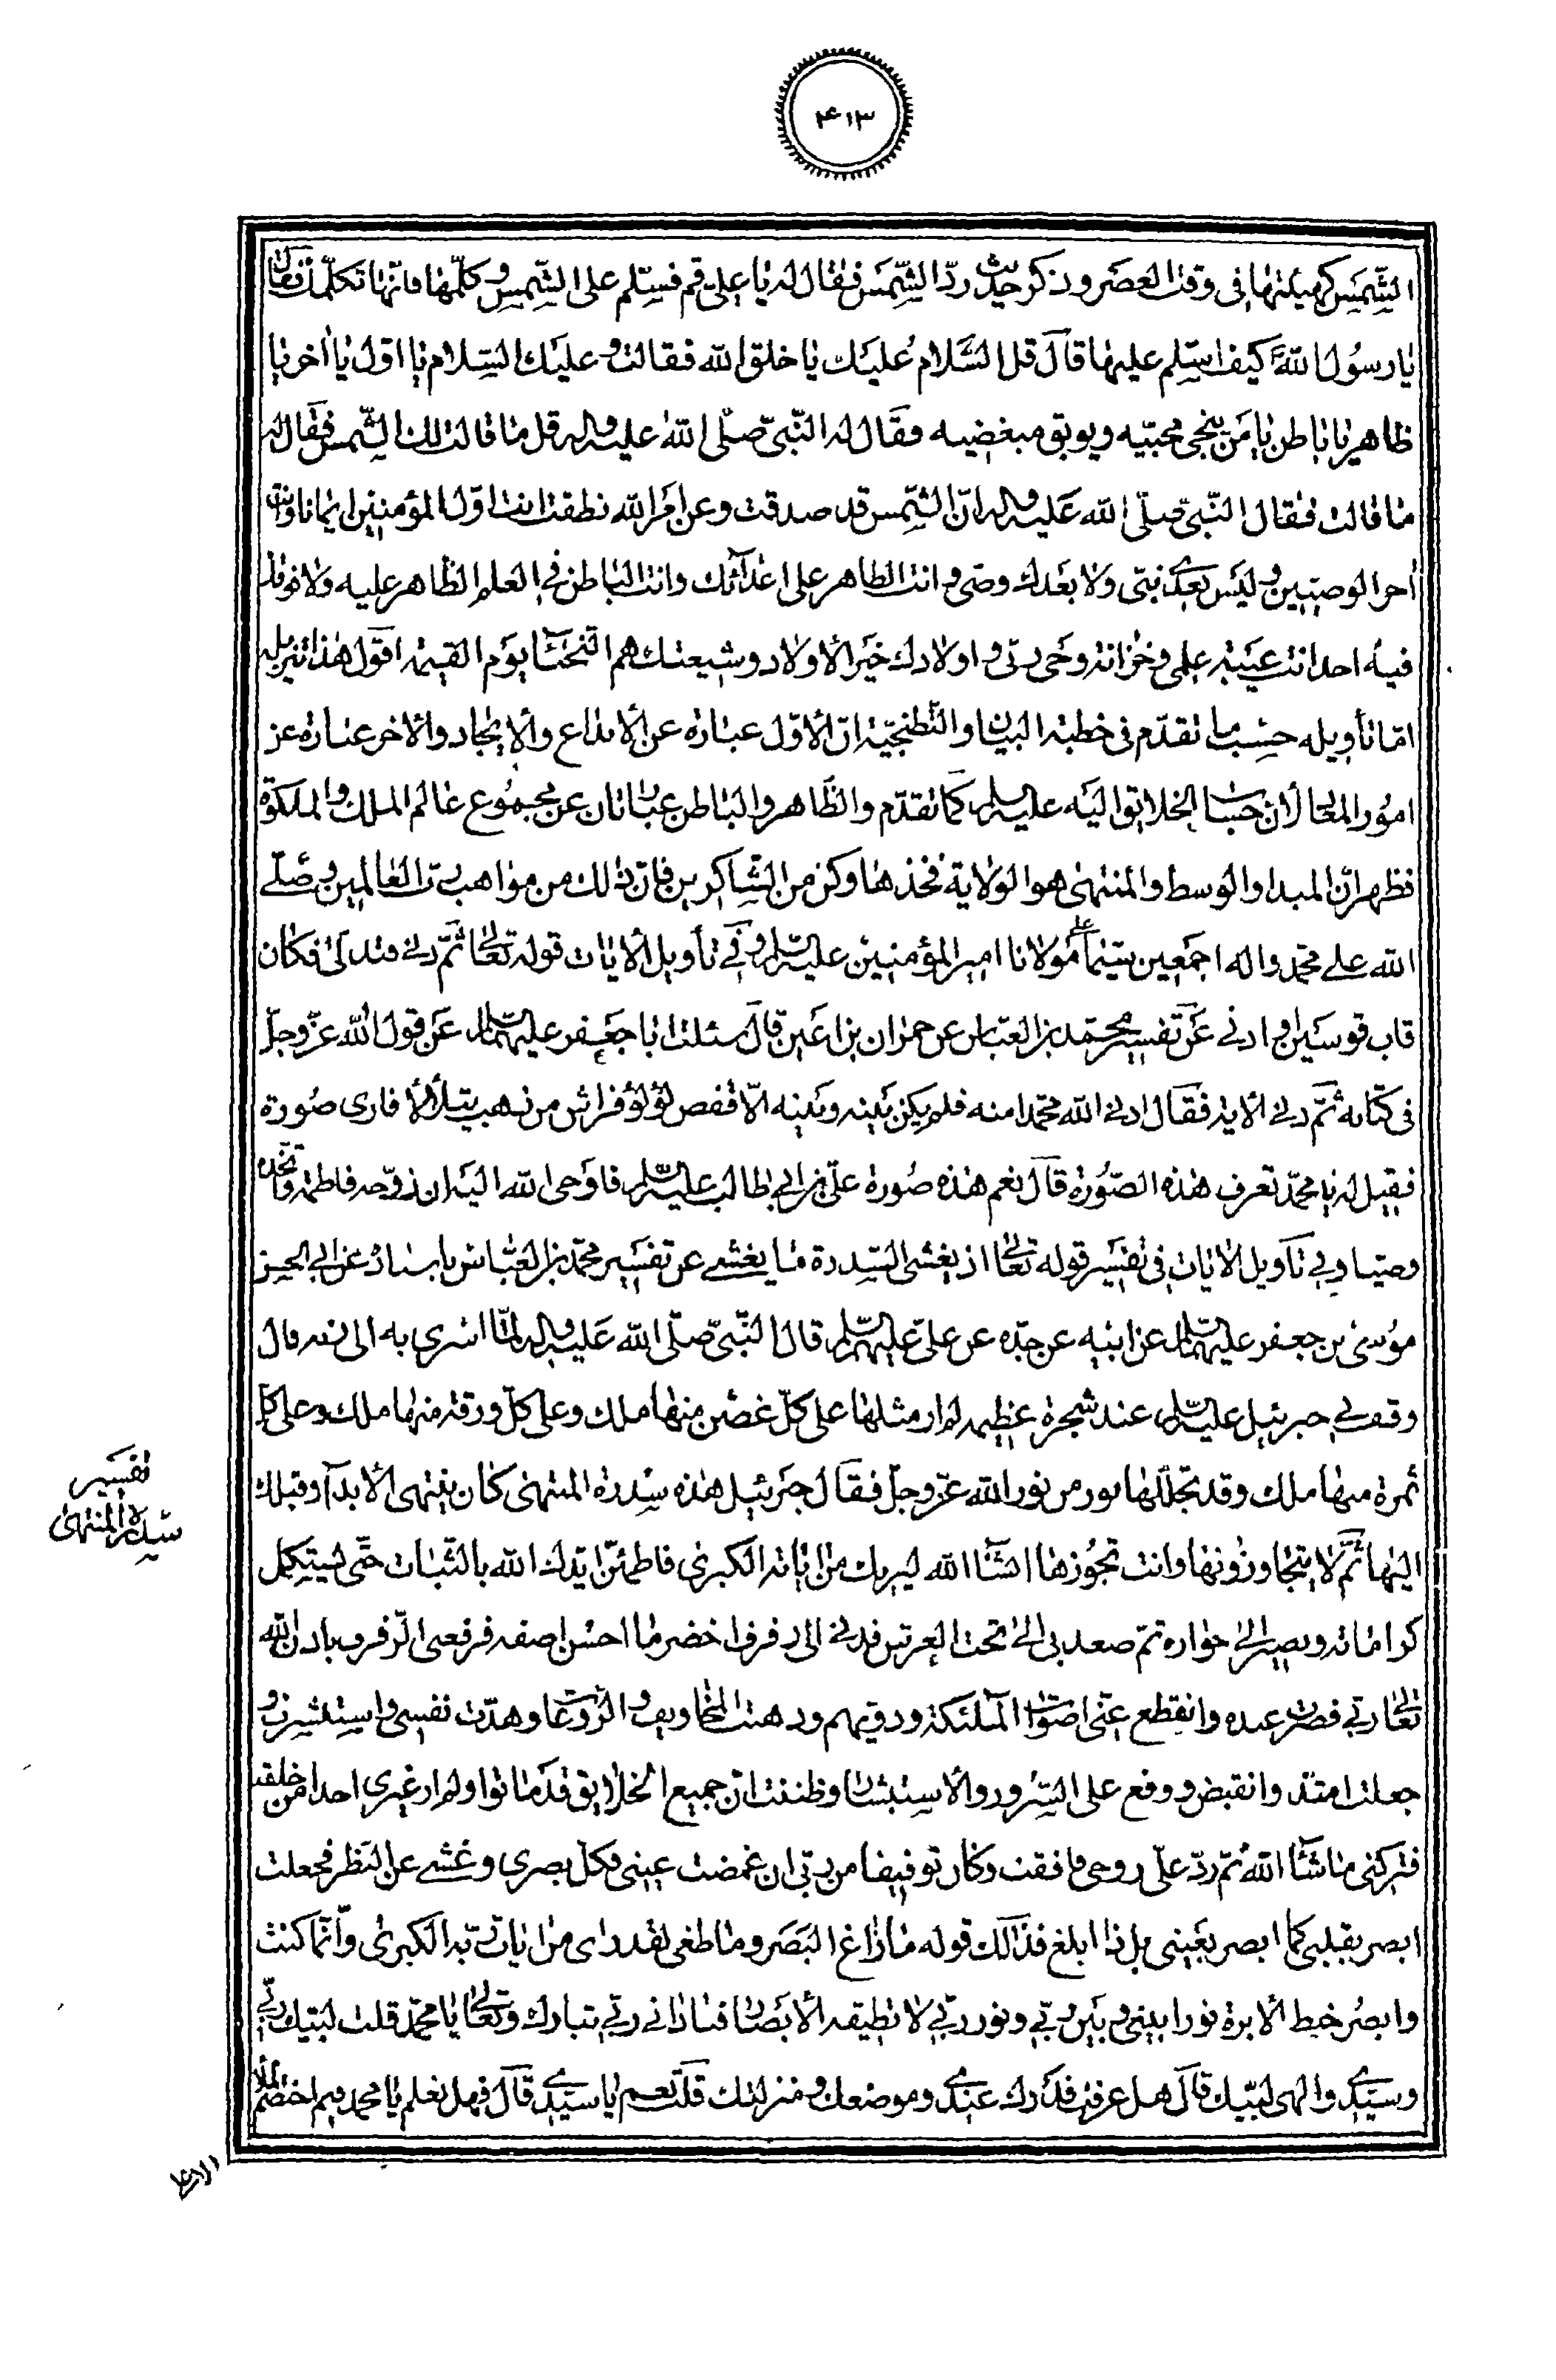 ۴۱۳
الشّمس كهيئتها فى وقت العصر و ذكر حديث ردّ الشّمس فقال له يا على قم فسلّم على الشّمس و كلّمها فانّها تكلّمك فقال
يا رسول الله كيف اسلّم عليها قال قل السّلام عليك يا خلق الله فقالت و عليك السّلام يا اوّل يا اخر يا
ظاهر يا باطن يا من ينجى محبّيه و يوبق مبغضيه فقال له النّبىّ صلّى الله عليه و اله قل ما قالت لك الشّمس فقال له
ما قالت فقال النّبىّ صلّى الله عليه و اله انّ الشّمس قد صدقت و عن امر الله نطقت انت اوّل المؤمنين ايمانا و انت
اخر الوصيّين و ليس بعدى نبىّ و لا بعدك وصى و انت الظاهر على اعدآئك و انت الباطن فى العلم الظاهر عليه و لا فوقك
فيه احد انت عيبة علمى و خزانة وحى ربّى و اولادك خير الاولاد و شيعتك هم النّجباء يوم القيمة اقول هذا تنزيله
امّا تأويله حسب ما تقدّم فى خطبة البيان و التّطنجيّة انّ الاوّل عبارة عن الابداع و الايجاد و الاخر عبارة عن
امور المعاد لانّ حساب الخلايق اليه عليه السلم كما تقدّم و الظّاهر و الباطن عبارتان عن مجموع عالم الملك و الملكوة
فظهر انّ المبدا و الوسط و المنتهى هو الولاية فخذها و كن من الشّاكرين فانّ ذلك من مواهب ربّ العالمين و صلّى
الله على محمّد و اله اجمعين سيّما مولانا امير المؤمنين عليه السلم و فى تأويل الايات قوله تعالى ثمّ دنى فتدلّى فكان
قاب قوسين او ادنى عن تفسير محمّد بن العبّاس عن حمران بن اعين قال سئلت ابا جعفر عليه السلم عن قول الله عزّ و جلّ
فى كتابه ثمّ دنى الاية فقال ادنى الله محمّدا منه فلم يكن بينه و بينه الّا قفص لؤلؤ فراش من ذهب يتلألأ فارى صورة
فقيل له يا محمّد تعرف هذه الصّورة قال نعم هذه صورة علىّ بن ابى طالب عليه السلم فاوحى الله اليه ان زوّجه فاطمة و اتّخذه
وصيّا و فى تأويل الايات فى تفسير قوله تعالى اذ يغشى السّدرة ما يغشى عن تفسير محمّد بن العبّاس باسناده عن ابى الحسن
موسى بن جعفر عليهما السلم عن ابيه عن جدّه عن علىّ عليهم السلم قال النّبىّ صلّى الله عليه و اله لمّا اسرى به الى ربّه قال
وقف بى جبرئيل عليه السلم عند شجرة عظيمة لم ار مثلها على كلّ غصن منها ملك و على كلّ ورقة منها ملك و على كلّ
ثمرة منها ملك و قد تجلّلها نور من نور الله عزّ و جلّ فقال جبرئيل هذه سدرة المنتهى كان ينتهى الانبياء قبلك
اليها ثمّ لا يتجاوزونها و انت تجوزها انشاء الله ليريك من اياته الكبرى فاطمئنّ ايّدك الله بالثّبات حتّى تستكمل
كراماته و تصير الى جواره ثمّ صعد بى الى تحت العرش فدنى الى رفرف اخضر ما احسن اصفه فرفعنى الرّفرف باذن الله
تعالى الى ربّى فصرت عنده و انقطع عنّى اصوات الملئكة و دويّهم و ذهبت المخاويف و الرّوعات و هدئت نفسى و استبشرت و
جعلت امتدّ و انقبض و وقع علىّ السّرور و الاستبشار و ظننت انّ جميع الخلايق قد ماتوا و لم ار غيرى احدا من خلقه
فتركنى ما شاء الله ثمّ ردّ علىّ روحى فافقت و كان توفيقا من ربّى ان غمضت عينى و كلّ بصرى و غشى عن النّظر فجعلت
ابصر بقلبى كما ابصر بعينى بل ذا ابلغ فذلك قوله ما زاغ البصر و ما طغى لقد راى من ايات ربّه الكبرى و انّما كنت
و ابصر خيط الابرة نورا بينى و بين ربّى و نور ربّى لا تطيقه الابصار فنادانى ربّى تبارك و تعالى يا محمّد قلت لبّيك ربّى
و سيّدى و الهى لبّيك قال هل عرفت قدرك عندى و موضعك و منزلتك قلت نعم يا سيّدى قال فهل تعلم يا محمد فيم اختصم الملأ
تفسير
سدرة المنتهى
الاعلى